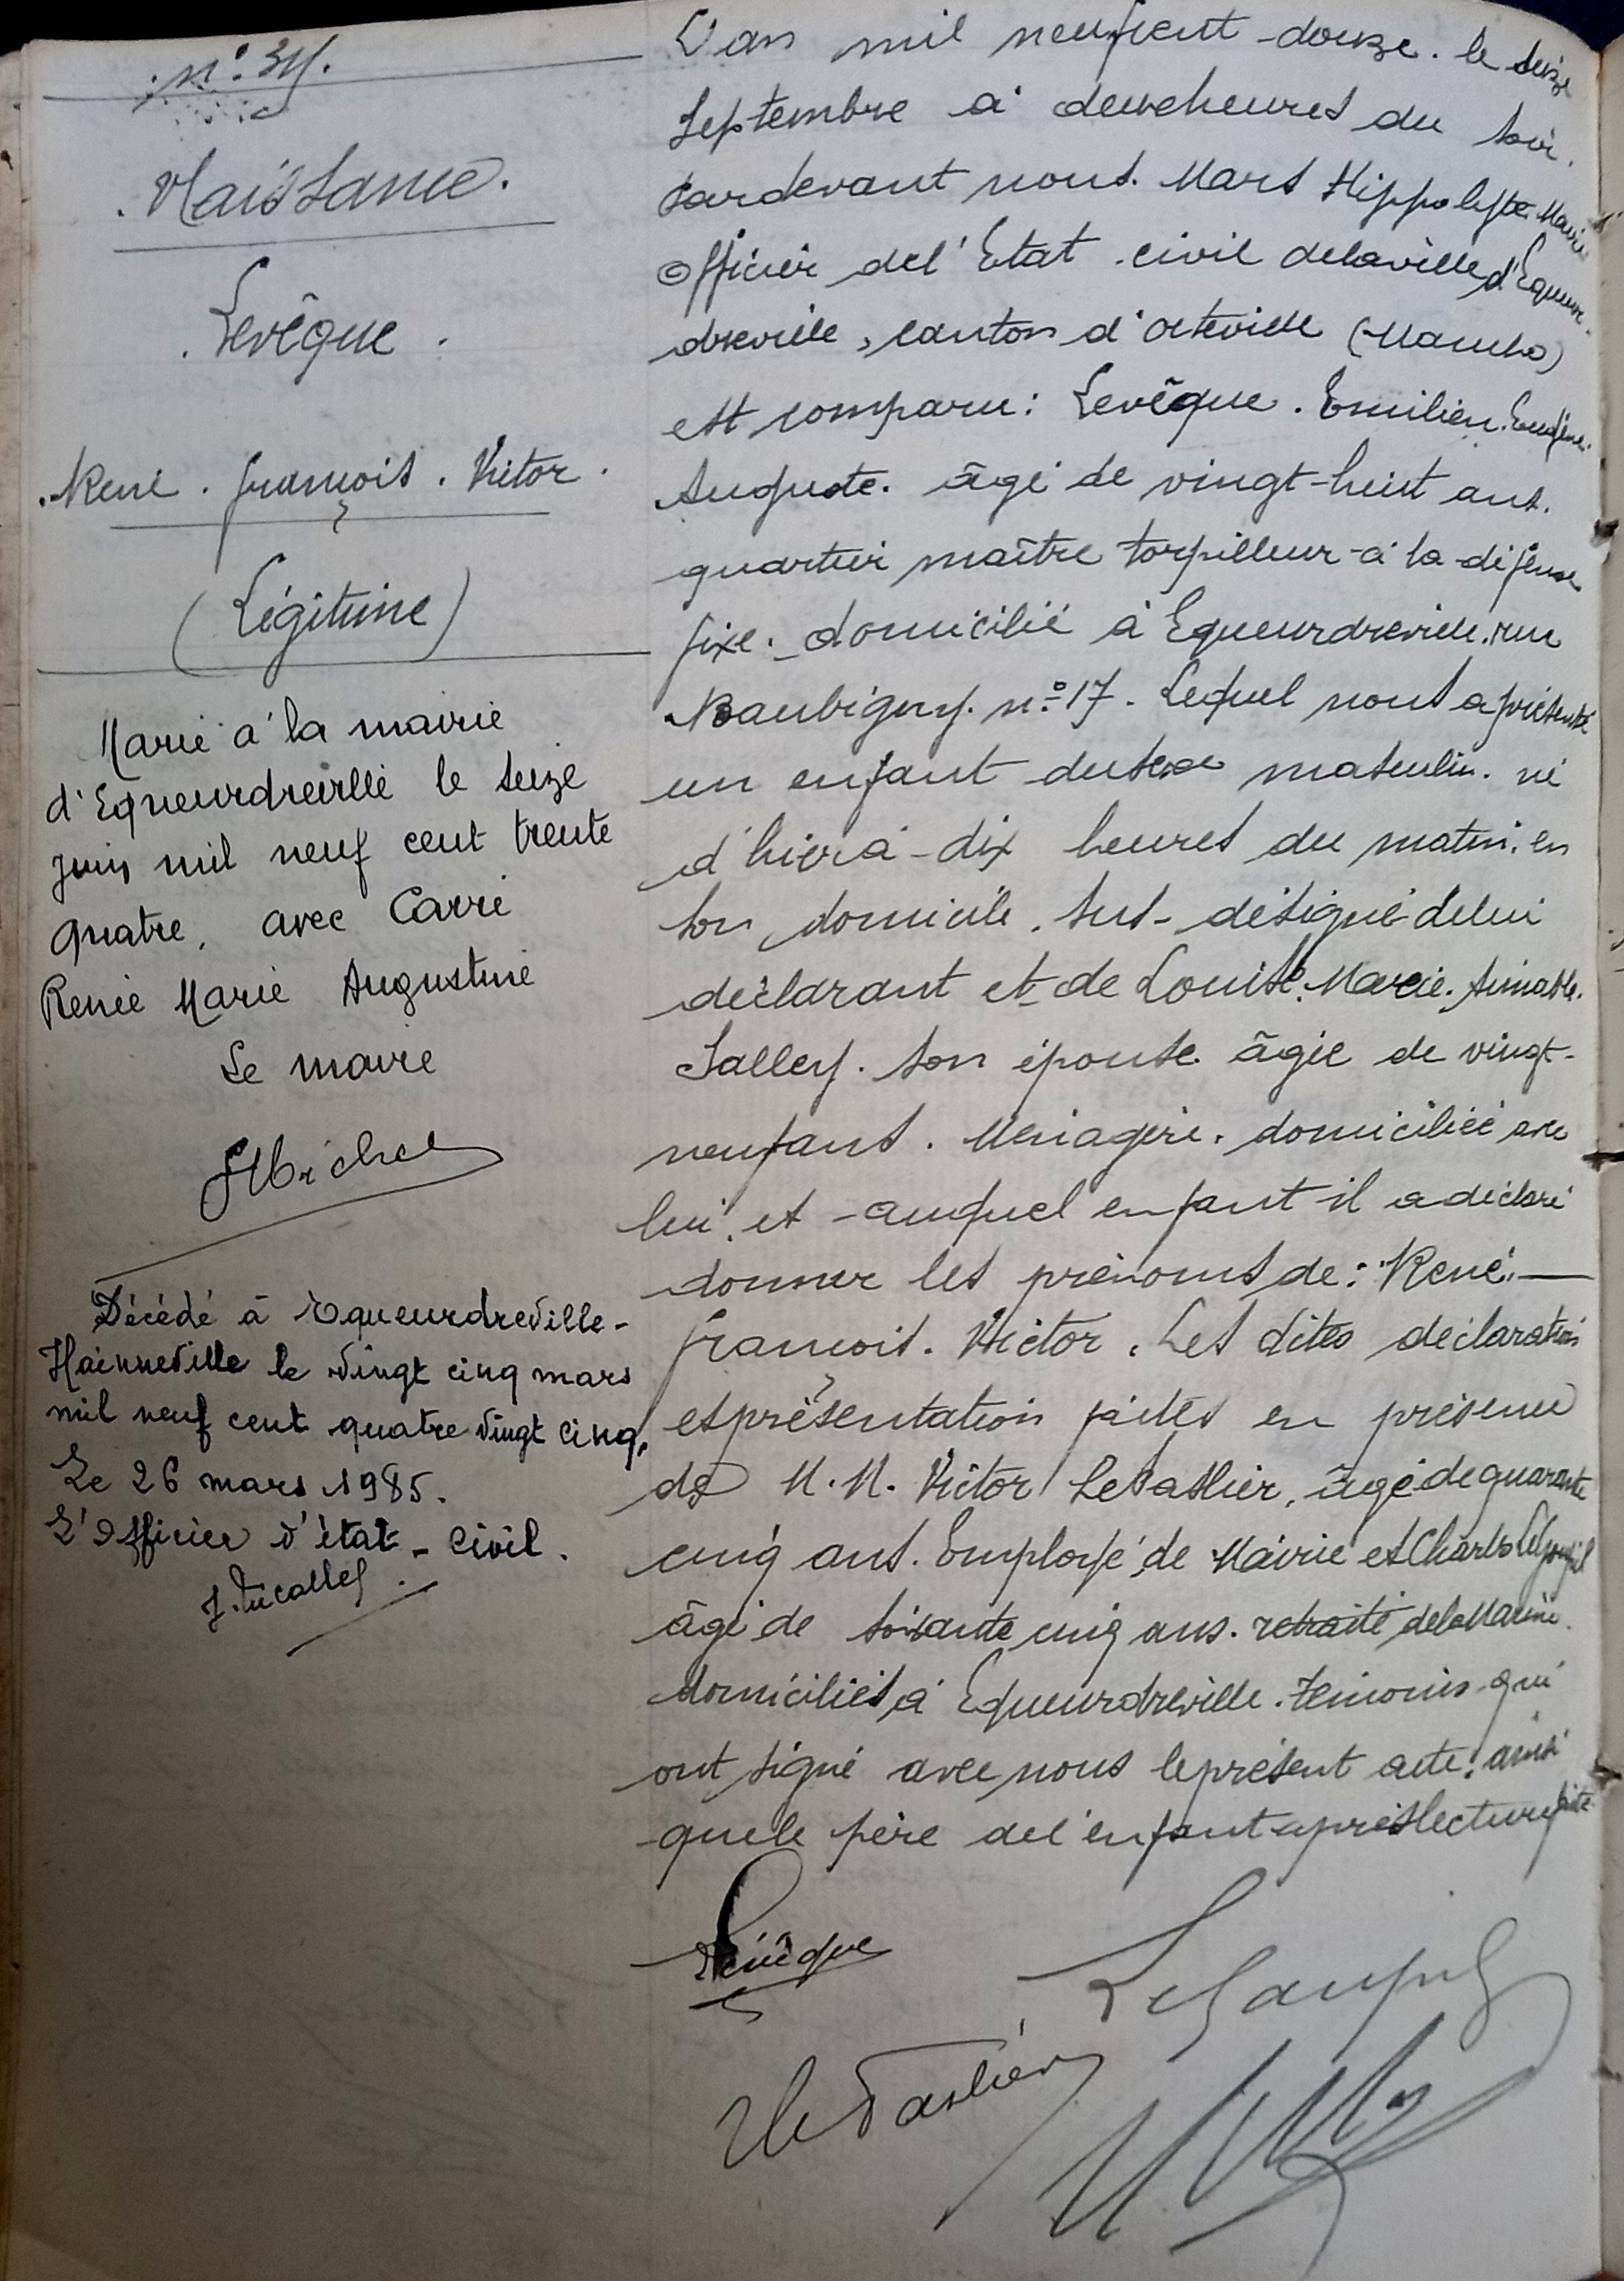 Naissance.
Levêque
René. François. Victor.
(Légitime)
Marié à la mairie
d'Equeurdreville le seize
juin mil neuf cent trente
quatre, avec Carré
Renée Marie Augustine
Le maire
Décédé à Equeurdreville-
Hainneville le vingt cinq mars
mil neuf cent quatre vingt cinq.
Le 26 mars 1985.
L'Officier d'état-civil.
L'an mil neuf cent-douze. le seize
Septembre à deux heures du soir.
Pardevant nous. Mars Hippolyte Maire
Officier de l'Etat civil de la ville d'Equeur-
dreville, canton d'Octeville (Manche)
est comparu: Levêque. Emilien. Eugène.
Auguste. âgé de vingt-huit ans.
quartier maître torpilleur à la défense
fixe. domicilié à Equeurdreville. rue
Baubigny. n° 17. Lequel nous a présenté
un enfant du sexe masculin. né
d'hier à dix heures du matin. en
son domicile. sus-désigné de lui
déclarant et de Louise. Marie. Aimable.
Salley. son épouse âgée de vingt-
neuf ans. Ménagère. domiciliée avec
lui. et auquel enfant il a déclaré
donner les prénoms de: René.
François. Victor. Les dites déclaration
et présentation faites en présence
de M.M. Victor LePaslier, âgé de quarante
cinq ans. Employé de Mairie et Charles
âgé de soixante cinq ans. retraité de la Marine.
domiciliés à Equeurdreville. témoins qui
ont signé avec nous le présent acte. ainsi
que le père de l'enfant après lecture faite.
Levêque
LePaslier